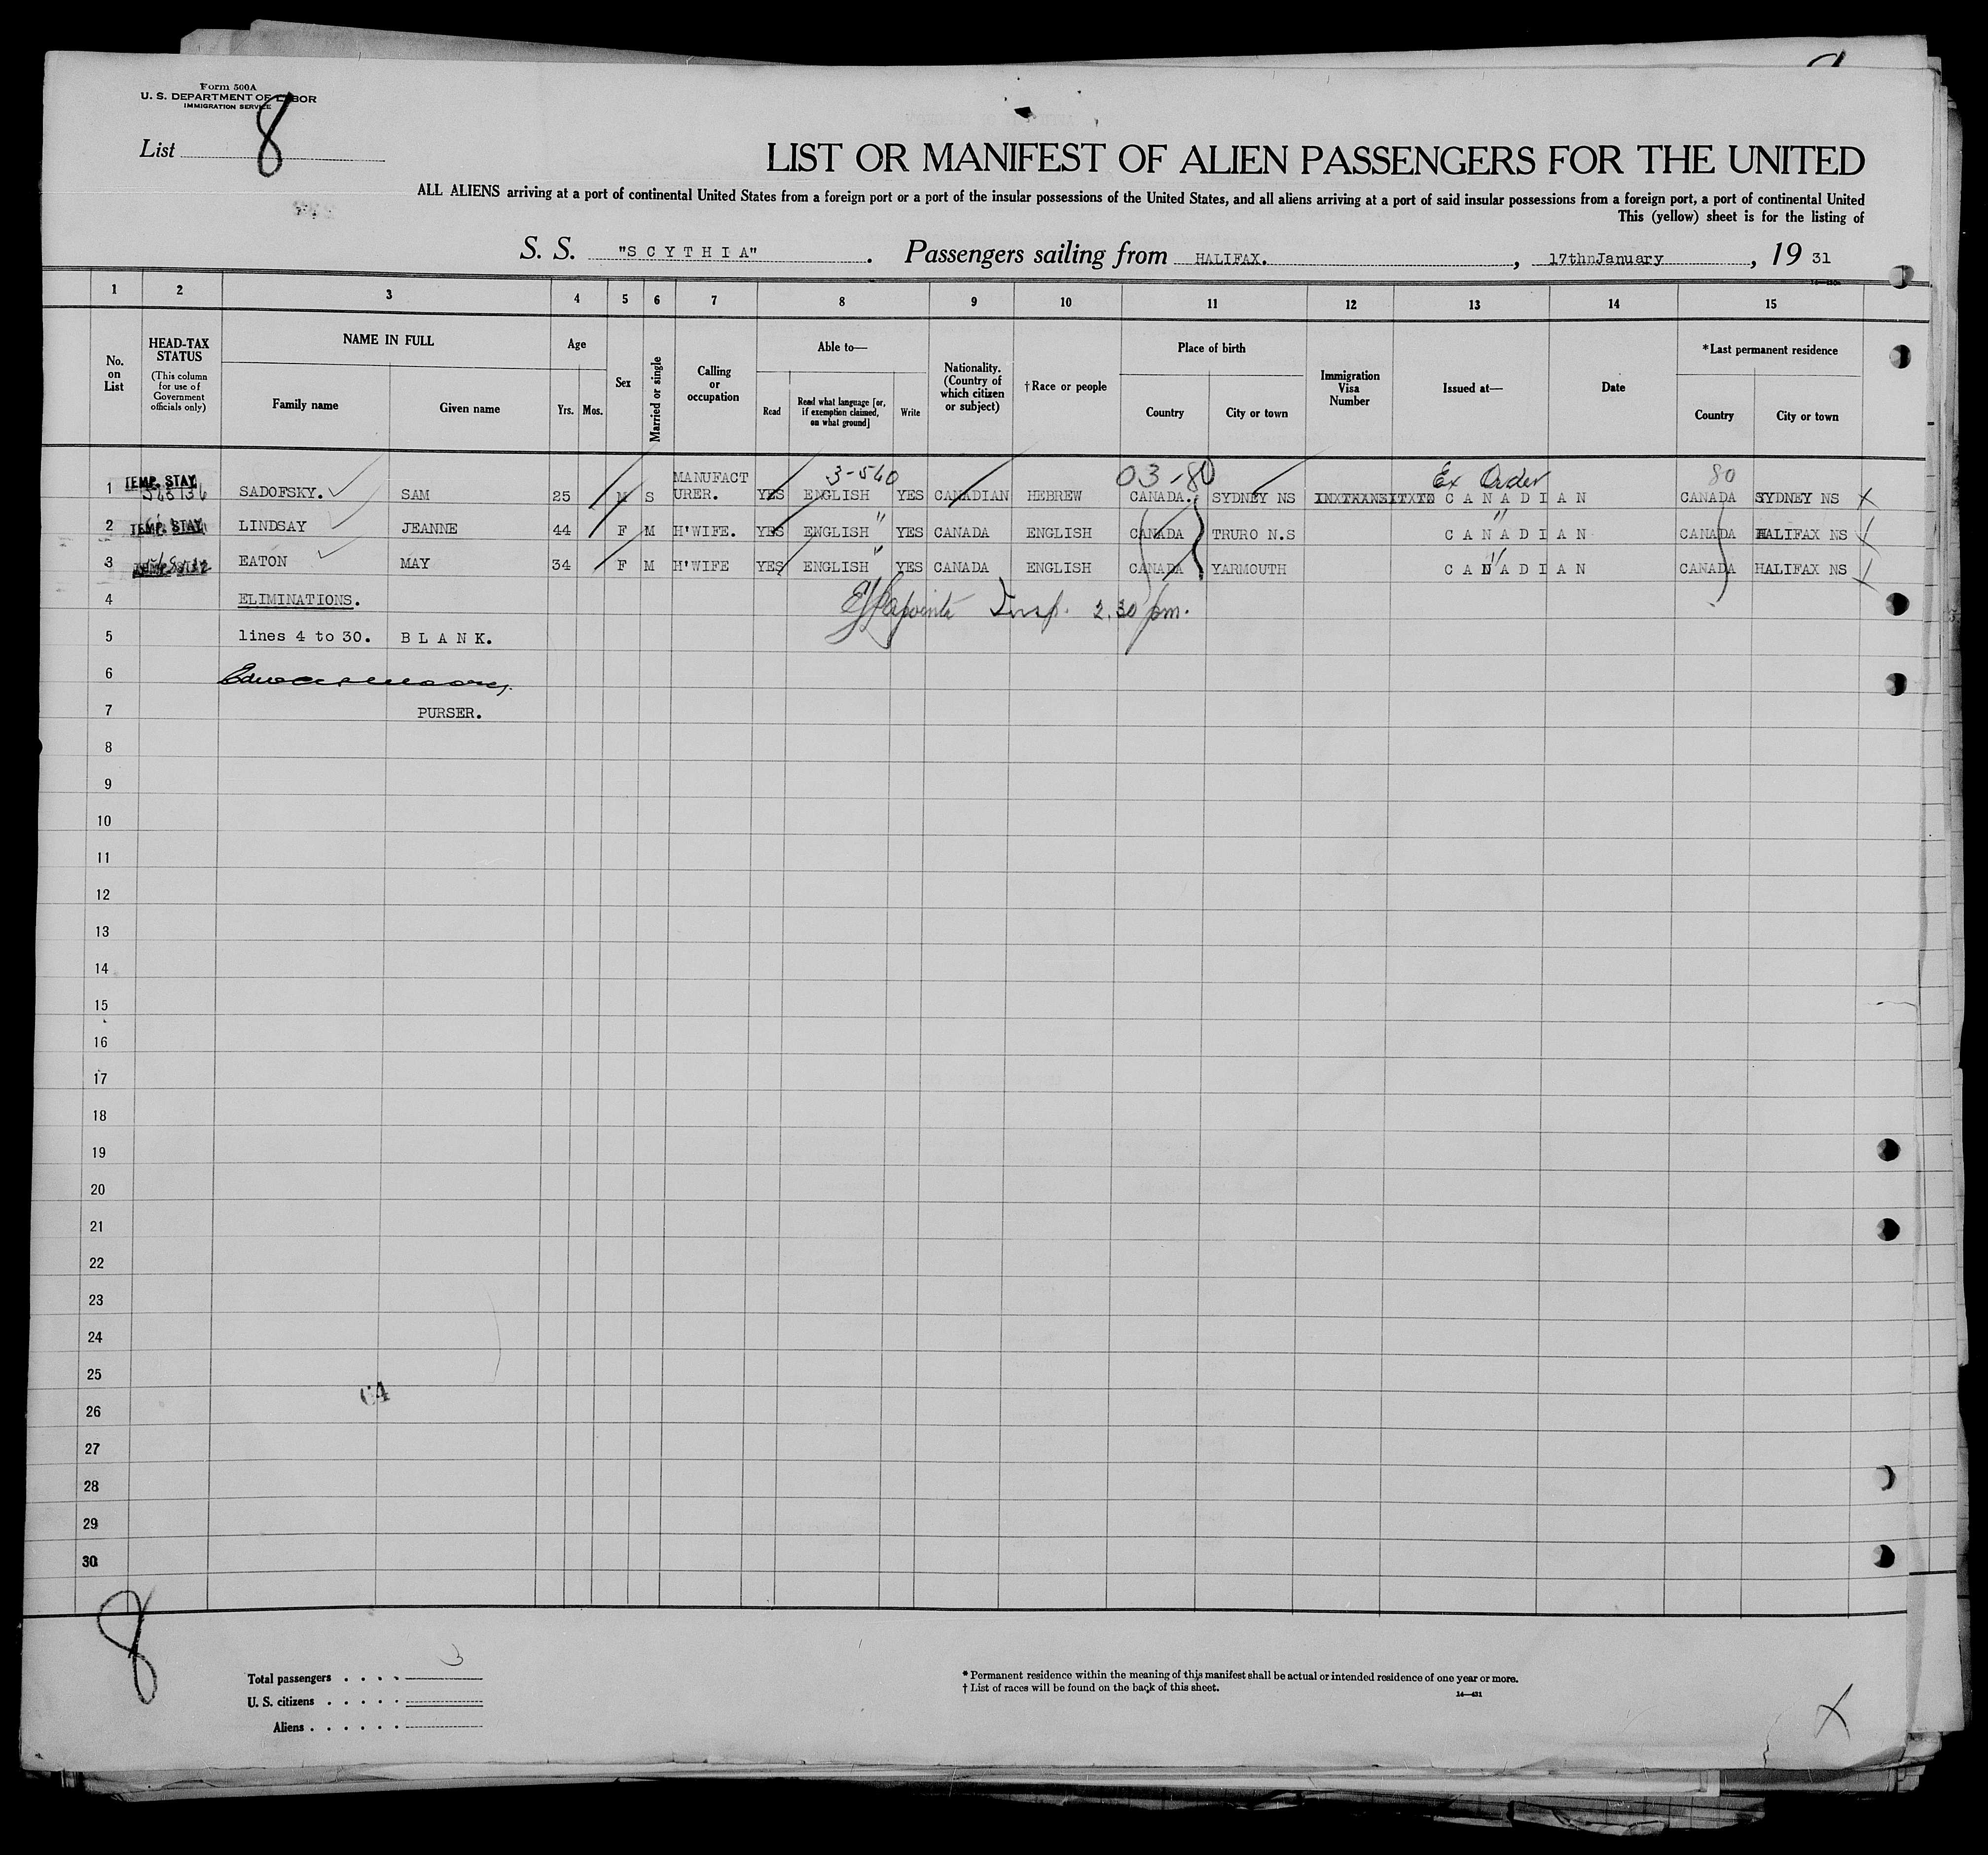 Form 500A
U. S. DEPARTMENT OF LABOR
IMMIGRATION SERVICE
List 8
LIST OR MANIFEST OF ALIEN PASSENGERS FOR THE UNITED
ALL ALIENS arriving at a port of continental United States from a foreign port or a port of the insular possessions of the United States, and all aliens arriving at a port of said insular possessions from a foreign port, a port of continental United
This (yellow) sheet is for the listing of
S. S. "S C Y T H I A". Passengers sailing from HALIFAX. , 17thnJanuary , 19 31
1 2 3 4 5 6 7 8 9 10 11 12 13 14 15
No. on List
HEAD-TAX STATUS
(This column for use of Government officials only)
NAME IN FULL
Family name Given name
Age
Yrs. Mos.
Sex
Married or single
Calling or occupation
Able to—
Read
Read what language [or, if exemption claimed, on what ground]
Write
Nationality. (Country of which citizen or subject)
†Race or people
Place of birth
Country City or town
Immigration Visa Number
Issued at—
Date
*Last permanent residence
Country City or town
3-560 03-80 Ex Order 80
1 TEMP. STAY SADOFSKY. SAM 25 M S MANUFACT URER. YES ENGLISH YES CANADIAN HEBREW CANADA. SYDNEY NS C A N A D I A N CANADA SYDNEY NS X
2 TEMP. STAY LINDSAY JEANNE 44 F M H'WIFE. YES ENGLISH " YES CANADA ENGLISH CANADA TRURO N.S " C A N A D I A N CANADA HALIFAX NS
3 EATON MAY 34 F M H'WIFE YES ENGLISH " YES CANADA ENGLISH CANADA YARMOUTH " C A N A D I A N CANADA HALIFAX NS
4 ELIMINATIONS. Insp. 2.30 pm.
5 lines 4 to 30. B L A N K.
6
7 PURSER.
8
9
10
11
12
13
14
15
16
17
18
19
20
21
22
23
24
25
64
26
27
28
29
30
8
Total passengers . . . . 3
U. S. citizens . . . . .
Aliens . . . . . .
* Permanent residence within the meaning of this manifest shall be actual or intended residence of one year or more.
† List of races will be found on the back of this sheet.
14—431
X